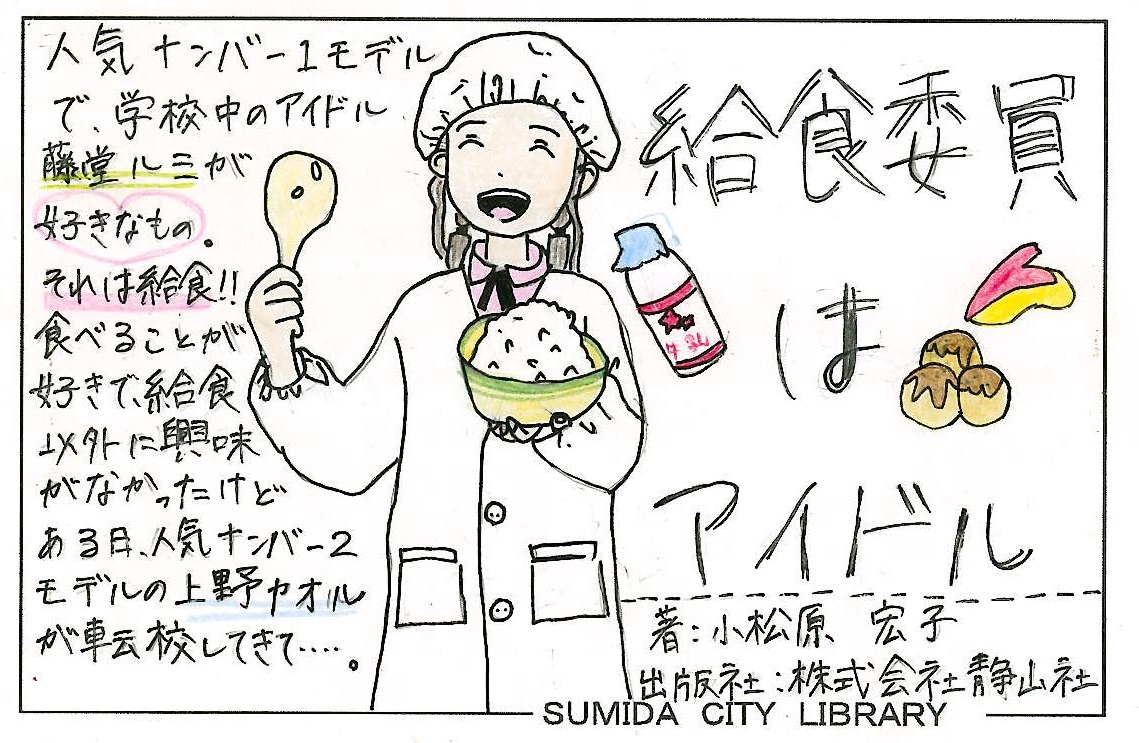 人気ナンバー1モデル
で、学校中のアイドル
藤堂ルミが
好きなもの。
それは給食!!
食べることが
好きで、給食
以外に興味
がなかったけど
ある日、人気ナンバー2
モデルの上野カオル
が転校してきて…。
給食委員
は
アイドル
牛乳
著:小松原 宏子
出版社:株式会社静山社
SUMIDA CITY LIBRARY